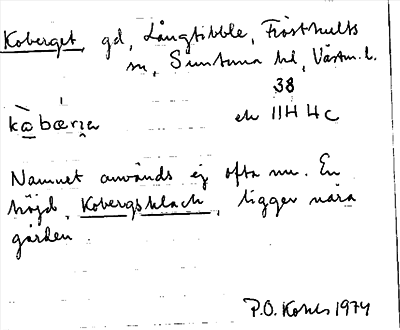 Koberget, gd, Långtibble, Frösthults
sn, Simtuna hd, Västm. l.
38
kàbærıa ek 11H 4c
Namnet används ej ofta nu. En
höjd, Kobergsklack, ligger nära
gården.
P.O. Kohls 1974